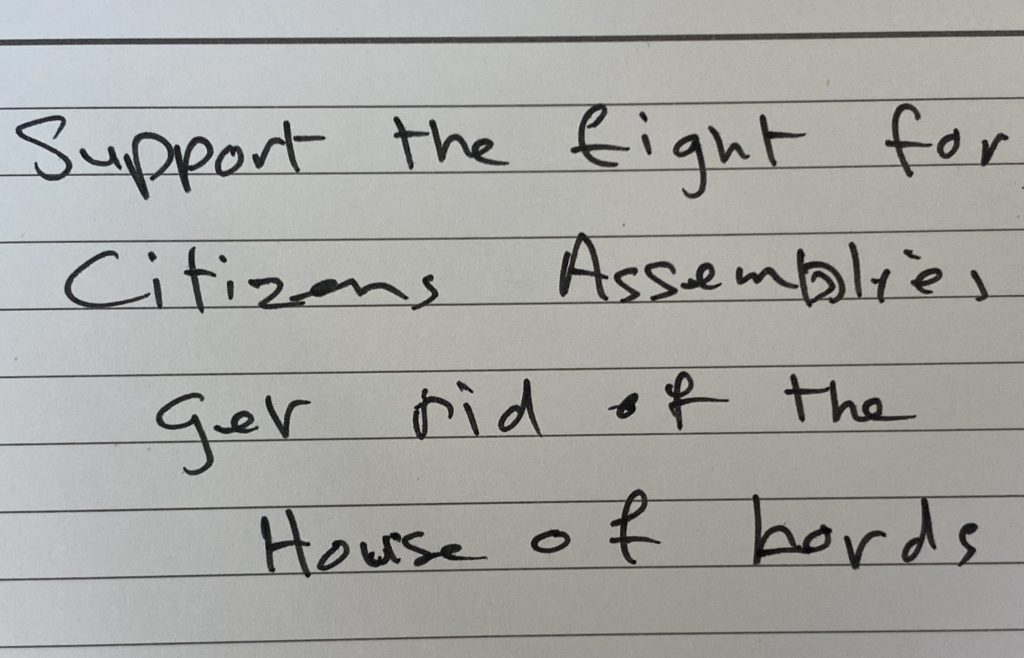 Support the fight for
Citizens Assemblies
get rid of the
House of Lords